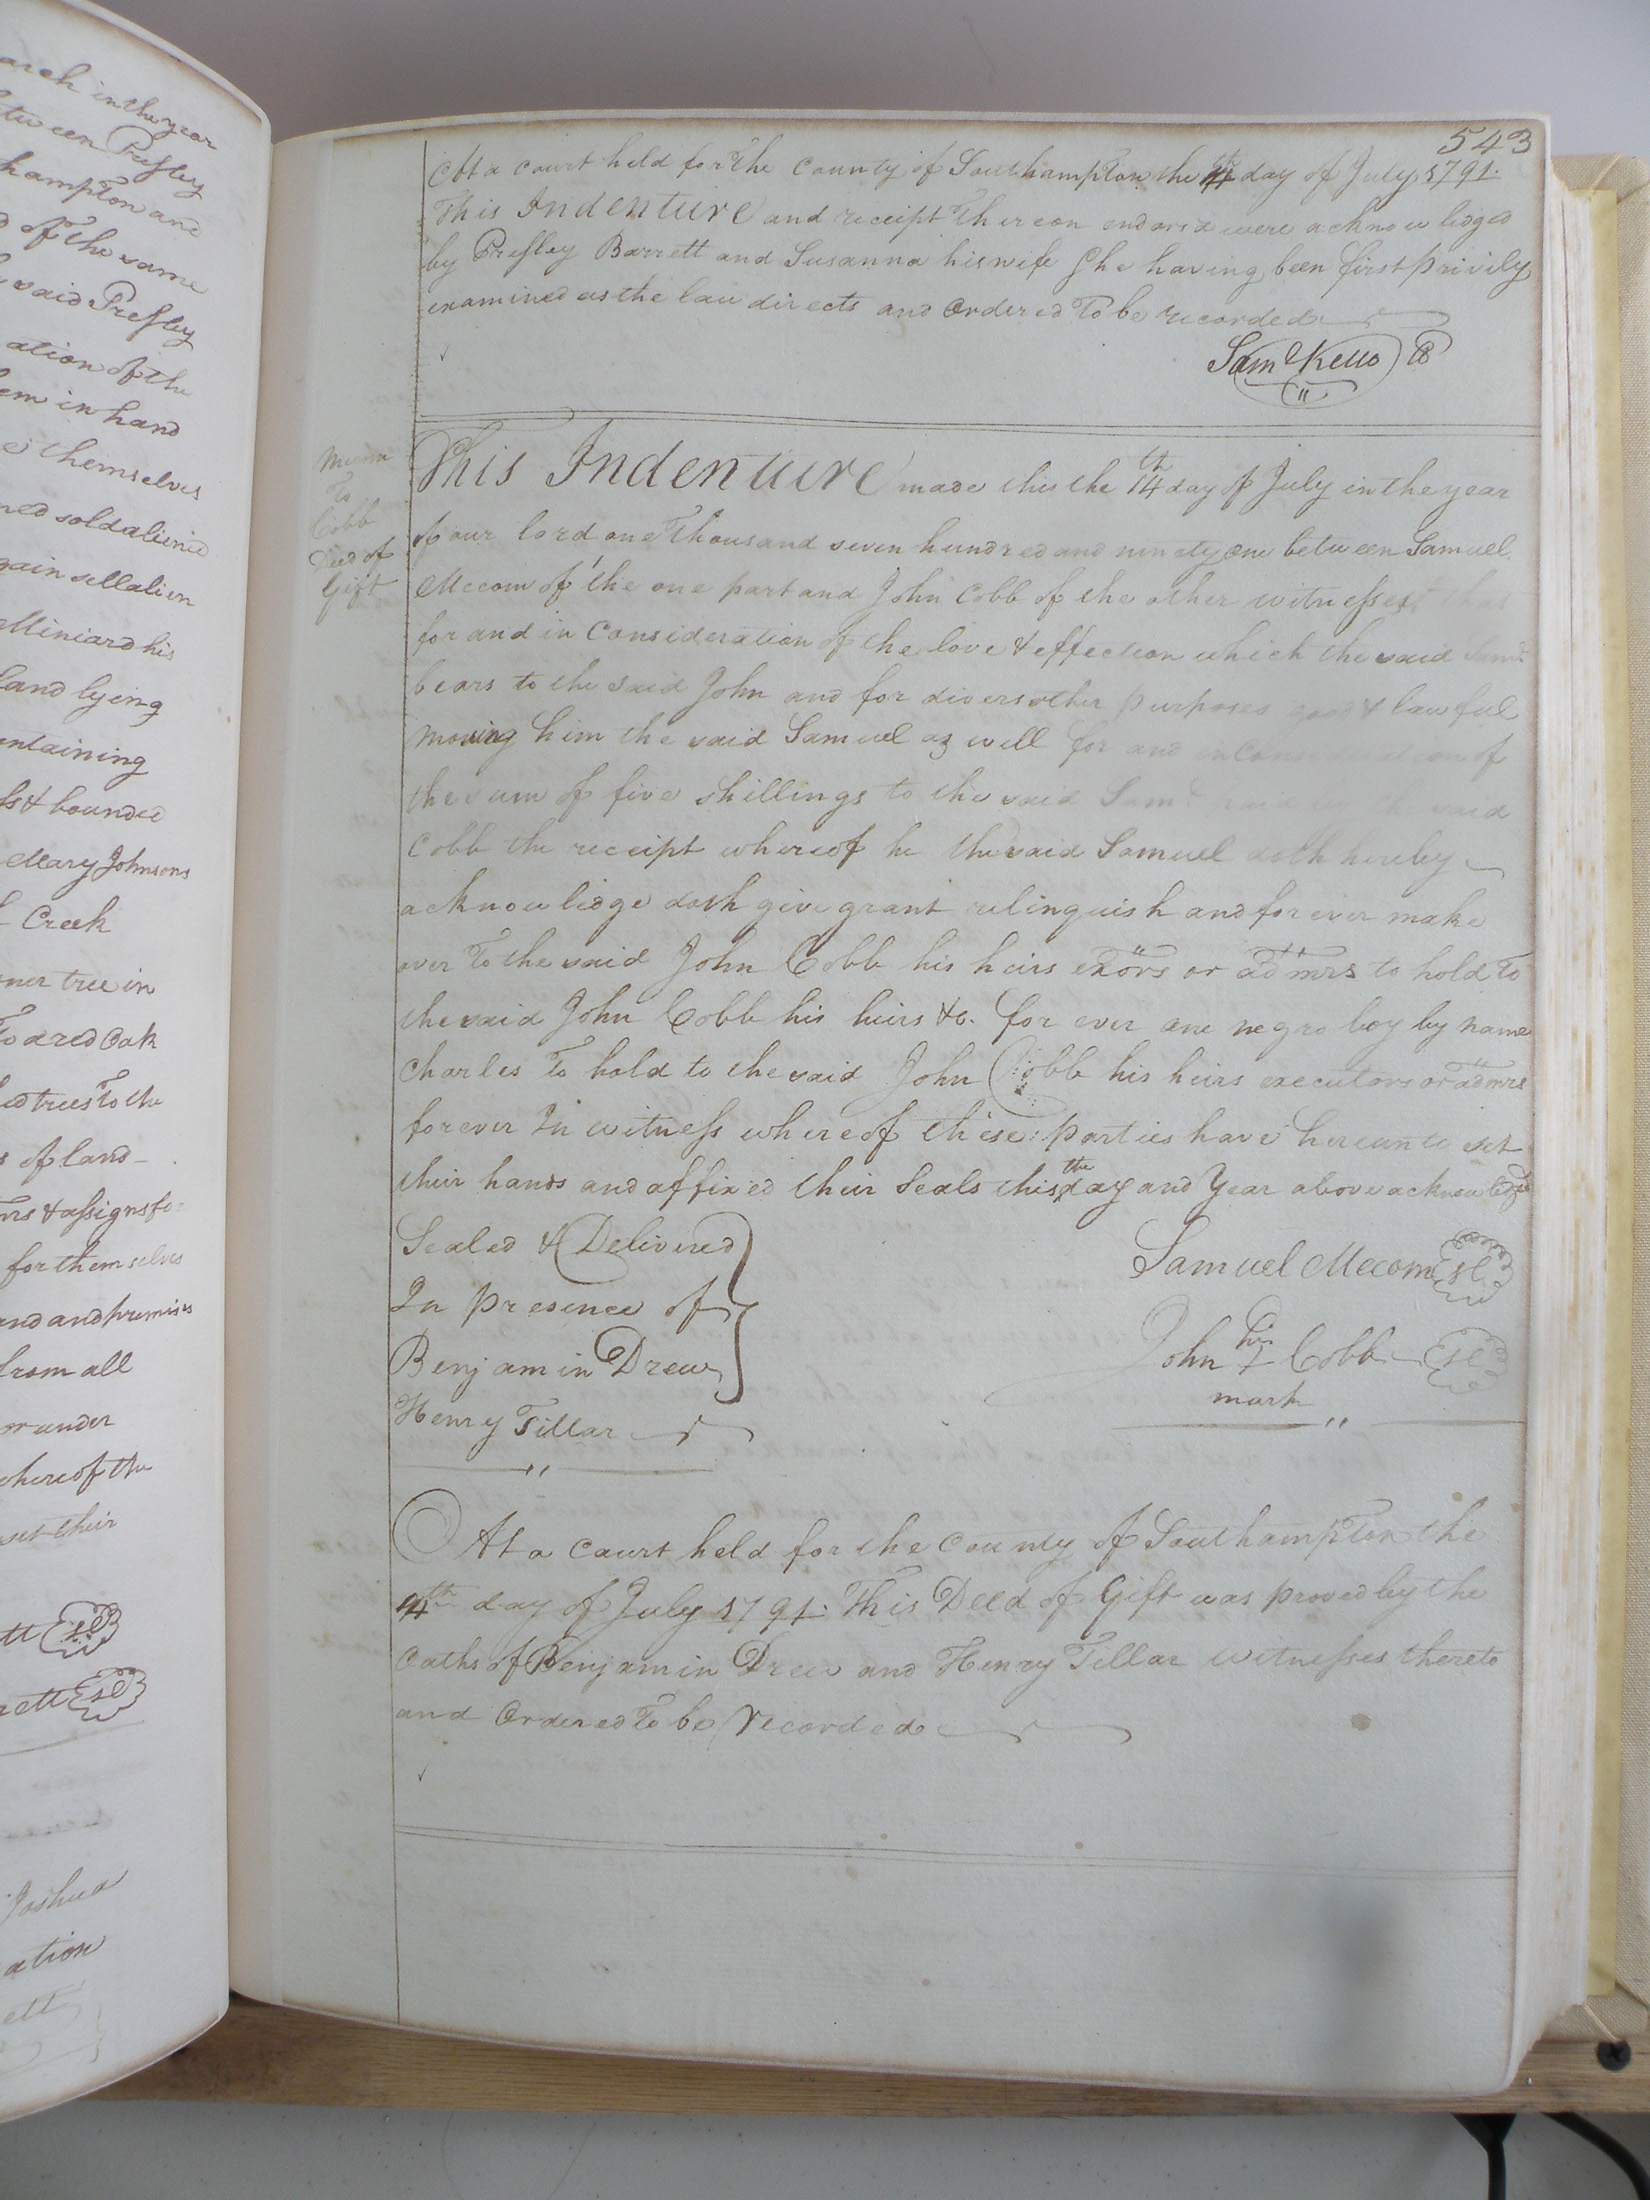 arch in the year
tween Presley
hampton and
d of the same
said Presley
ation of the
em in hand
themselves
ned sold alien'd
gain sell alien
Miniard his
land lying
ontaining
& bounded
Mary Johnsons
Creek
ner tree in
To a red Oak
ed trees To the
s of land
rs & assigns fo
for themselves
and and premises
from all
or under
whereof the
set their
tt
rett
Joshua
ation
ett
543
At a court held for The County of Southampton the 14th day of July 1791.
This Indenture and receipt Thereon endorsd were acknowledged
by Presley Barrett and Susanna his wife She having been first privily
examined as the law directs and Ordered To be recorded
Saml Kello CC
Mecom
To
Cobb
Deed of
Gift
This Indenture made this the 14th day of July in the year
of our lord one Thousand seven hundred and ninety one between Samuel
Mecom of the one part and John Cobb of the other witnesset that
for and in Consideration of the love & effection which the said Saml
bears to the said John and for divers other purposes good & lawful
moving him the said Samuel as well for and in Consideration of
the sum of five shillings to the said Saml paid by the said
Cobb the receipt whereof he the said Samuel doth hereby
acknowlidge doth give grant relinquish and for ever make
over To the said John Cobb his heirs exors or admrs to hold To
the said John Cobb his heirs &c. for ever one negro boy by name
Charles To hold to the said John Cobb his heirs executors or admrs
forever In witness whereof these parties have hereunto set
their hands and affixed their Seals this the day and Year above acknowledged
Sealed & Delivered
In presence of
Benjamin Drew
Henry Tillar
Samuel Mecom
his
John + Cobb
mark
At a Court held for the County of Southampton the
14th day of July 1791. This Deed of Gift was proved by the
Oaths of Benjamin Drew and Henry Tillar witnesses thereto
and Ordered To be recorded